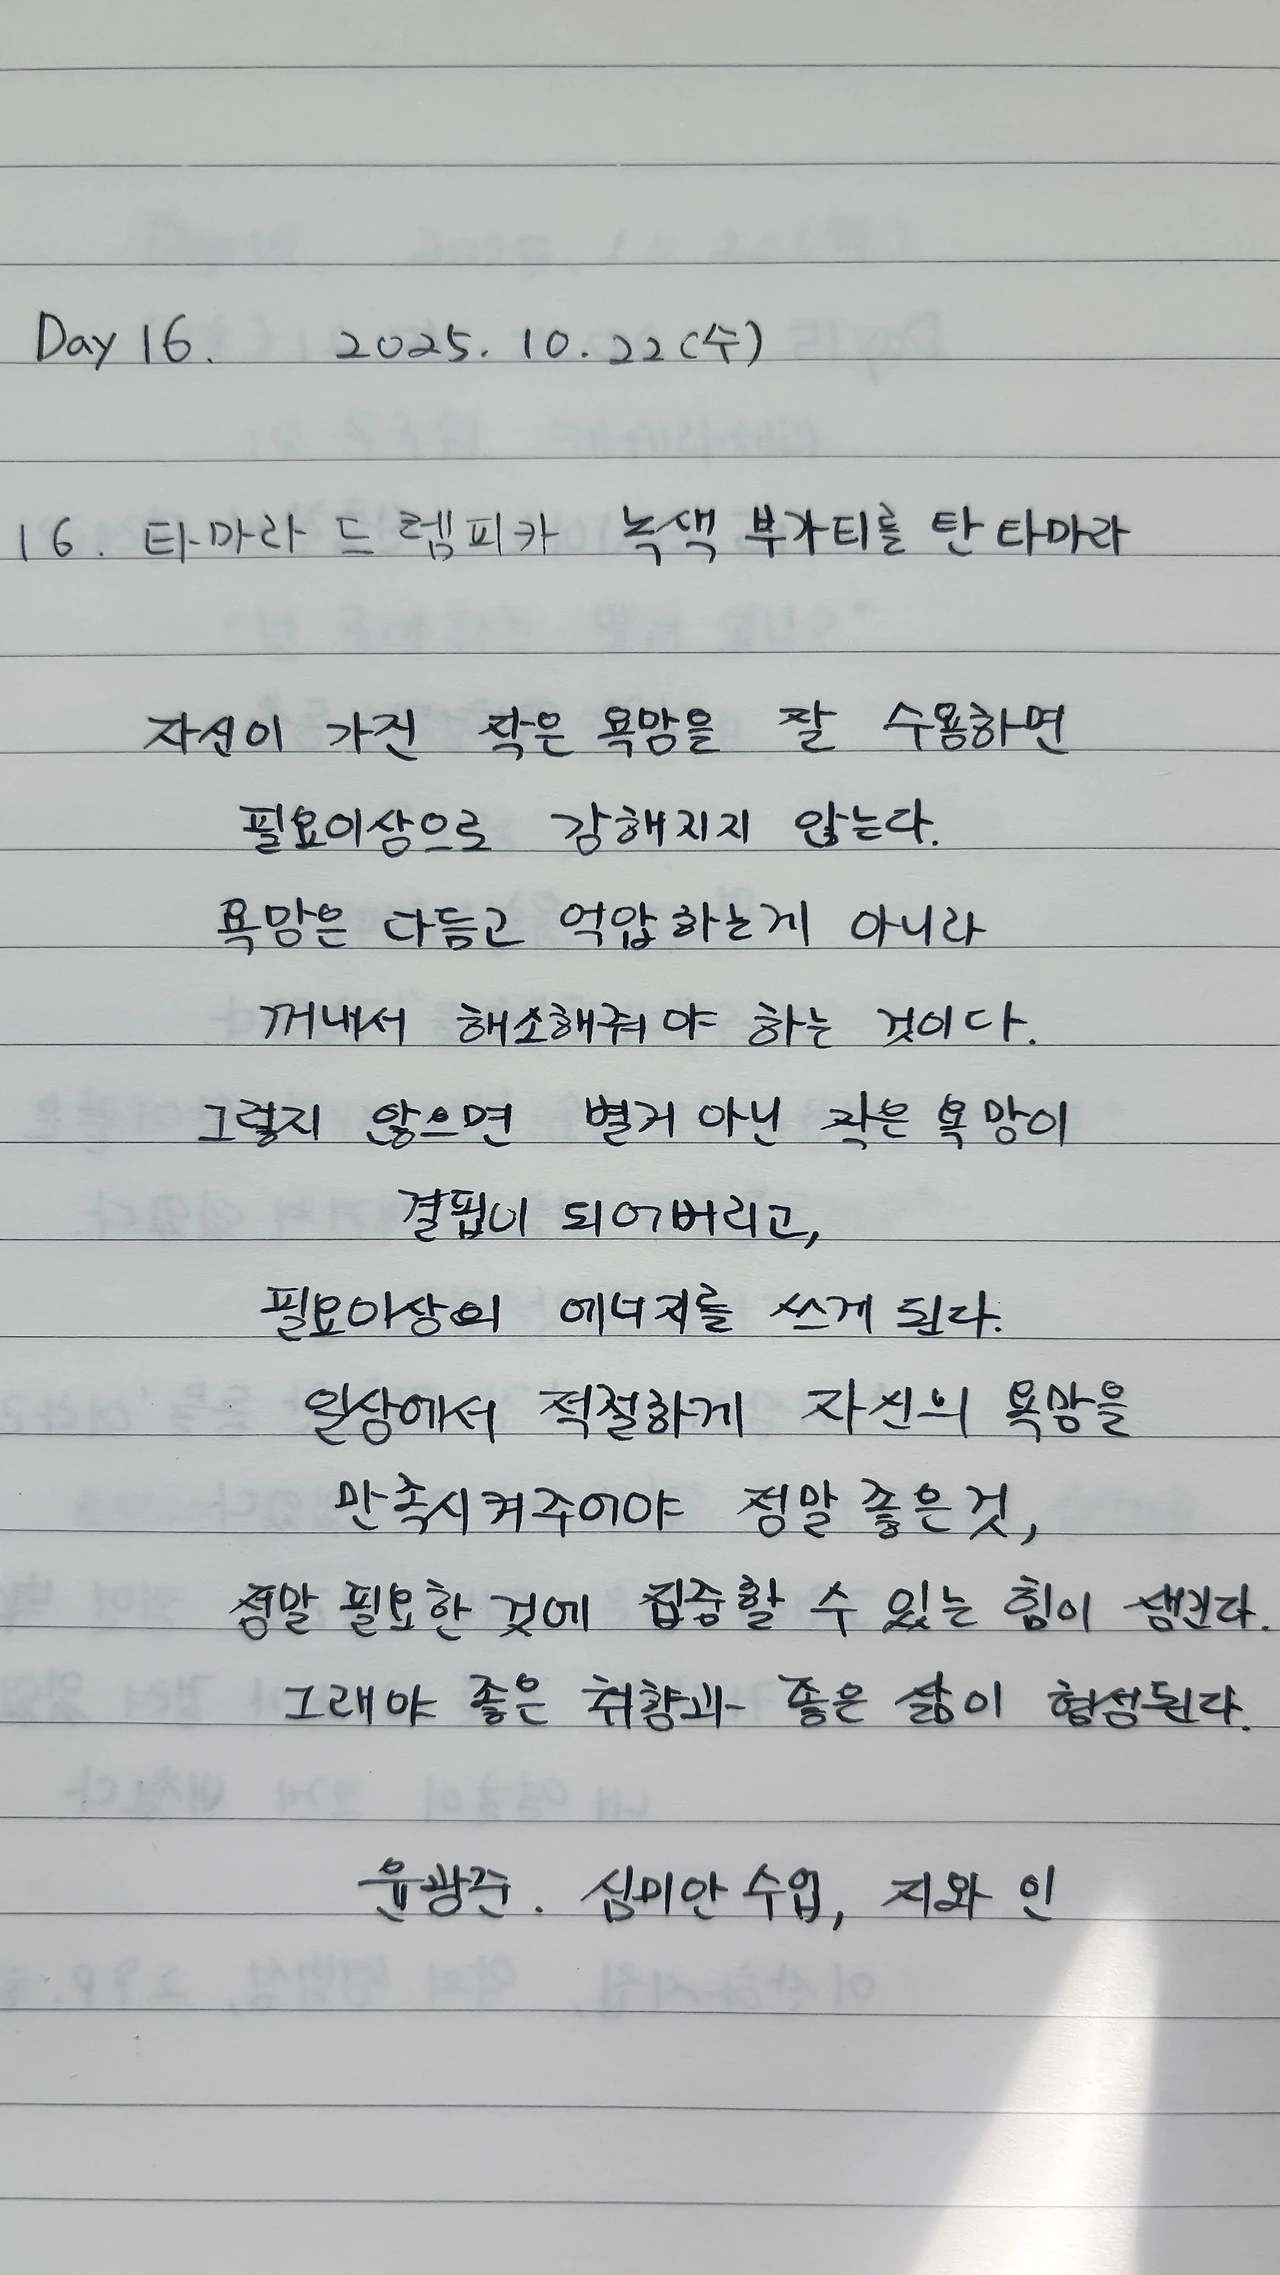 Day 16. 2025. 10. 22 (수)
16. 타마라 드 렘피카 녹색 부가티를 탄 타마라
자신이 가진 작은 욕망을 잘 수용하면
필요이상으로 강해지지 않는다.
욕망은 다듬고 억압하는게 아니라
꺼내서 해소해줘야 하는 것이다.
그렇지 않으면 별거 아닌 작은 욕망이
결핍이 되어버리고,
필요이상의 에너지를 쓰게 된다.
일상에서 적절하게 자신의 욕망을
만족시켜주어야 정말 좋은것,
정말 필요한 것에 집중할 수 있는 힘이 생긴다.
그래야 좋은 취향과 좋은 삶이 형성된다.
윤광준. 심미안 수업, 지와 인